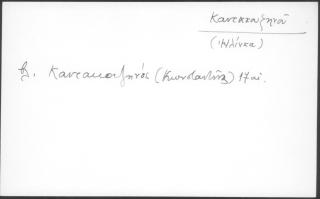 Καντακουζηνοῦ
(Ἀλίνκα)
βλ. Καντακουζηνός (Κωνσταντῖνος) 17 αἰ.